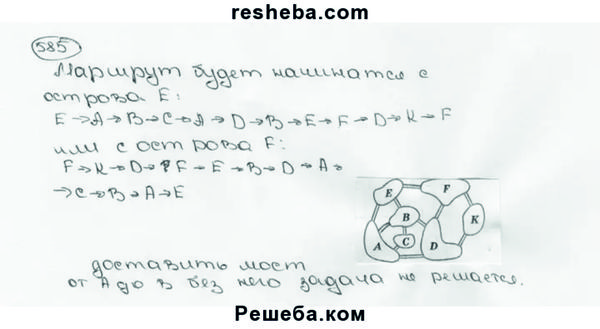 resheba.com
585
Маршрут будет начинатся с
острова E:
E→A→B→C→A→D→B→E→F→D→K→F
или с острова F:
F→K→D→F→E→B→D→A→
→C→B→A→E
E F
B K
A C D
доставить мост
от A до B без него задача не решается.
Решеба.ком